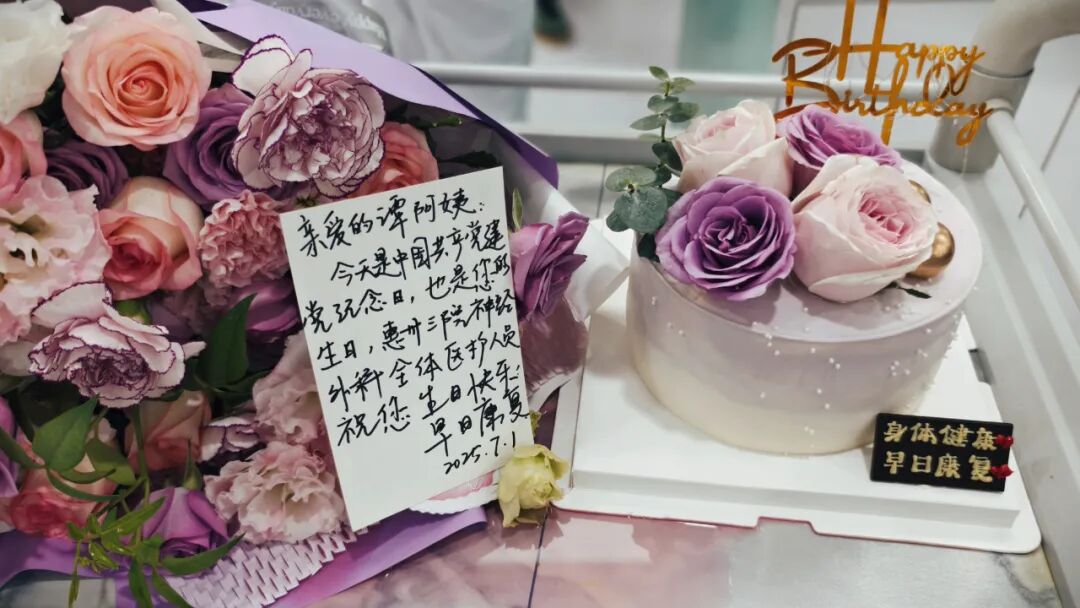 亲爱的谭阿姨:
今天是中国共产党建
党纪念日,也是您的
生日,惠州三院神经
外科全体医护人员
祝您 生日快乐!
早日康复
2025.7.1
Happy
Birthday
身体健康
早日康复